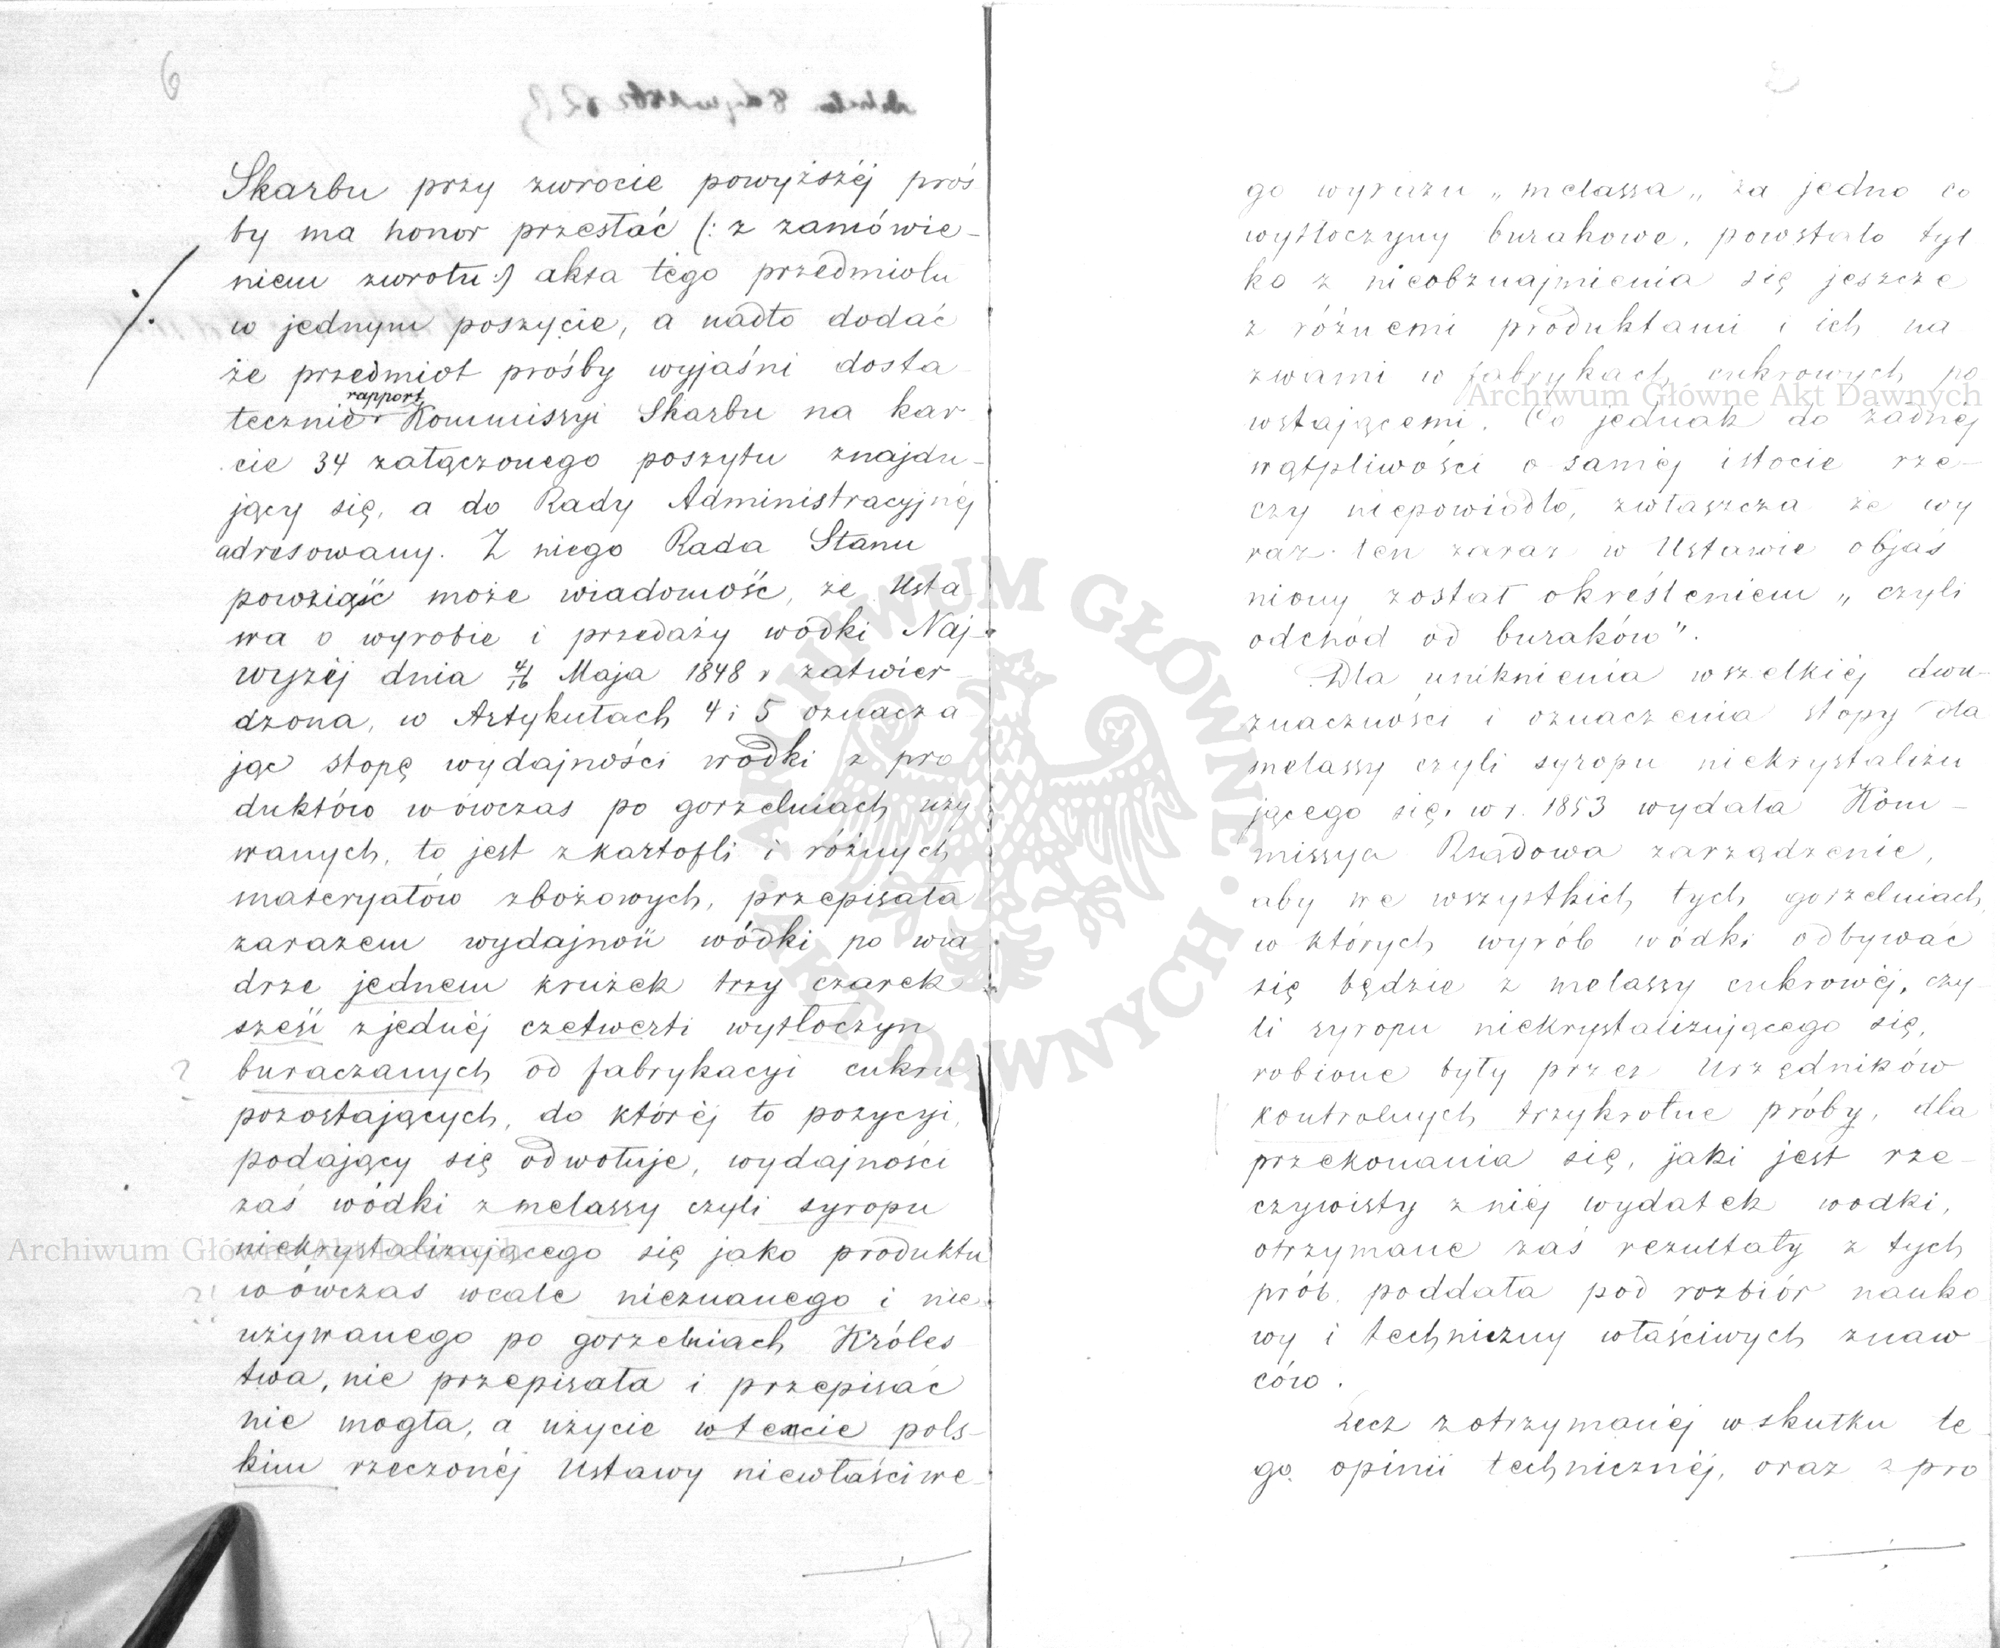 6
Skarbu przy zwrocie powyższéj proś
by ma honor przesłać (: z zamówie-
niem zwrotu :) akta tego przedmiotu
w jednym poszycie, a nadto dodać
że przedmiot prośby wyjaśni dosta
rapport
tecznie Kommissyi Skarbu na kar
cie 34 załączonego poszytu znajdu-
jący się, a do Rady Administracyjnéj
adresowany. Z niego Rada Stanu
powziąść może wiadomość, że Usta
wa o wyrobie i przedaży wódki Naj-
wyżéj dnia 4/16 Maja 1848 r zatwier
dzona, w Artykułach 4 i 5 oznacza
jąc stopę wydajności wódki z pro
duktów wówczas po gorzelniach uży
wanych, to jest z kartofli i różnych
materyałów zbożowych, przepisała
zarazem wydajność wódki po wia
drze jednem kruzek trzy czarek
sześć z jednéj czetwerti wytłoczyn
? buraczanych od fabrykacyi cukru
pozostających, do któréj to pozycyi,
podający się odwołuje, wydajności
zaś wódki z melassy czyli syropu
niekrystalizującego się jako produktu
wówczas wcale nieznanego i nie
używanego po gorzelniach Króles
twa, nie przepisała i przepisać
nie mogła, a użycie w texcie pols-
kim rzeczonéj Ustawy niewłaściwe-
go wyrazu „melassa„ za jedno co
wytłoczyny burakowe, powstało tyl
ko z nieobznajmienia się jeszcze
z różnemi produktami i ich na
zwami w fabrykach cukrowych po
wstającemi. Co jednak do żadnéj
wątpliwości o saméj istocie rze-
czy niepowiodło, zwłaszcza że wy
raz ten zaraz w Ustawie objaś
niony został określeniem „czyli
odchód od buraków".
Dla uniknienia wszelkiéj dwu-
znaczności i oznaczenia stopy dla
melassy czyli syropu niekrystalizu
jącego się, w r. 1853 wydała Kom-
missya Rządowa zarządzenie,
aby we wszystkich tych gorzelniach,
w których wyrób wódki odbywać
się będzie z melassy cukrowéj, czy-
li syropu niekrystalizującego się,
robione były przez Urzędników
kontrolnych trzykrotne próby, dla
przekonania się, jaki jest rze-
czywisty z niéj wydatek wodki,
otrzymane zaś rezultaty z tych
prób, poddała pod rozbiór nauko
wy i techniczny właściwych znaw
ców.
Lecz z otrzymanéj w skutku te
go opinii technicznéj, oraz z pro
Archiwum Główne Akt Dawnych
Archiwum Główne Akt Dawnych
ARCHIWUM GŁÓWNE AKT DAWNYCH